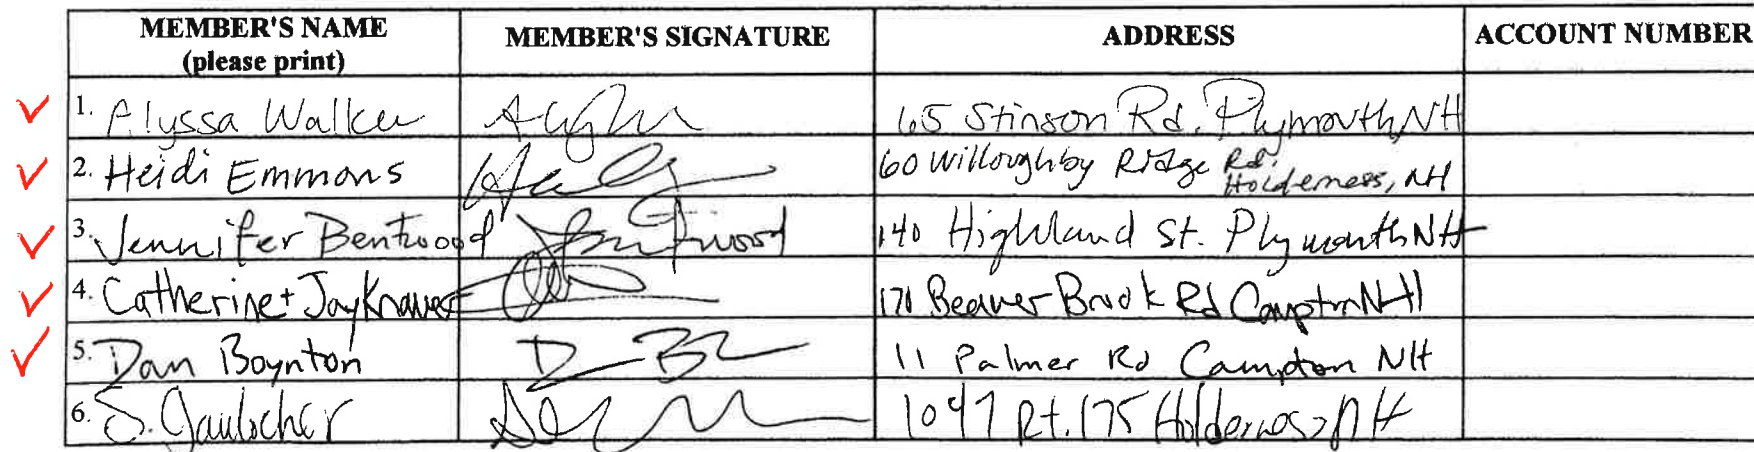 MEMBER'S NAME (please print) MEMBER'S SIGNATURE ADDRESS ACCOUNT NUMBER
1. Alyssa Walker 65 Stinson Rd. Plymouth, NH
2. Heidi Emmons 60 Willoughby Ridge Rd. Holderness, NH
3. Jennifer Bentwood 140 Highland St. Plymouth NH
4. Catherine + Jay 170 Beaver Brook Rd Campton NH
5. Dan Boynton 11 Palmer Rd Campton NH
6. S. 1047 Rt. 175 Holderness NH